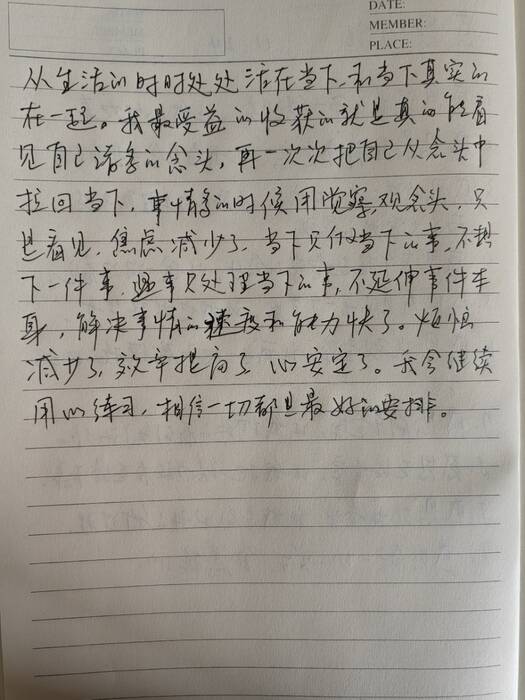 DATE:
MEMBER:
PLACE:
从生活的时时处处活在当下,和当下真实的
在一起。我最受益的收获的就是真的能看
见自己诸多的念头,再一次次把自己从念头中
拉回当下,事情多的时候用觉察,观念头,只
是看见,焦虑减少了,当下只做当下的事,不想
下一件事,遇事只处理当下的事,不延伸事件本
身,解决事情的速度和能力快了。烦恼
减少了,效率提高了 心安定了。我会继续
用心练习,相信一切都是最好的安排。